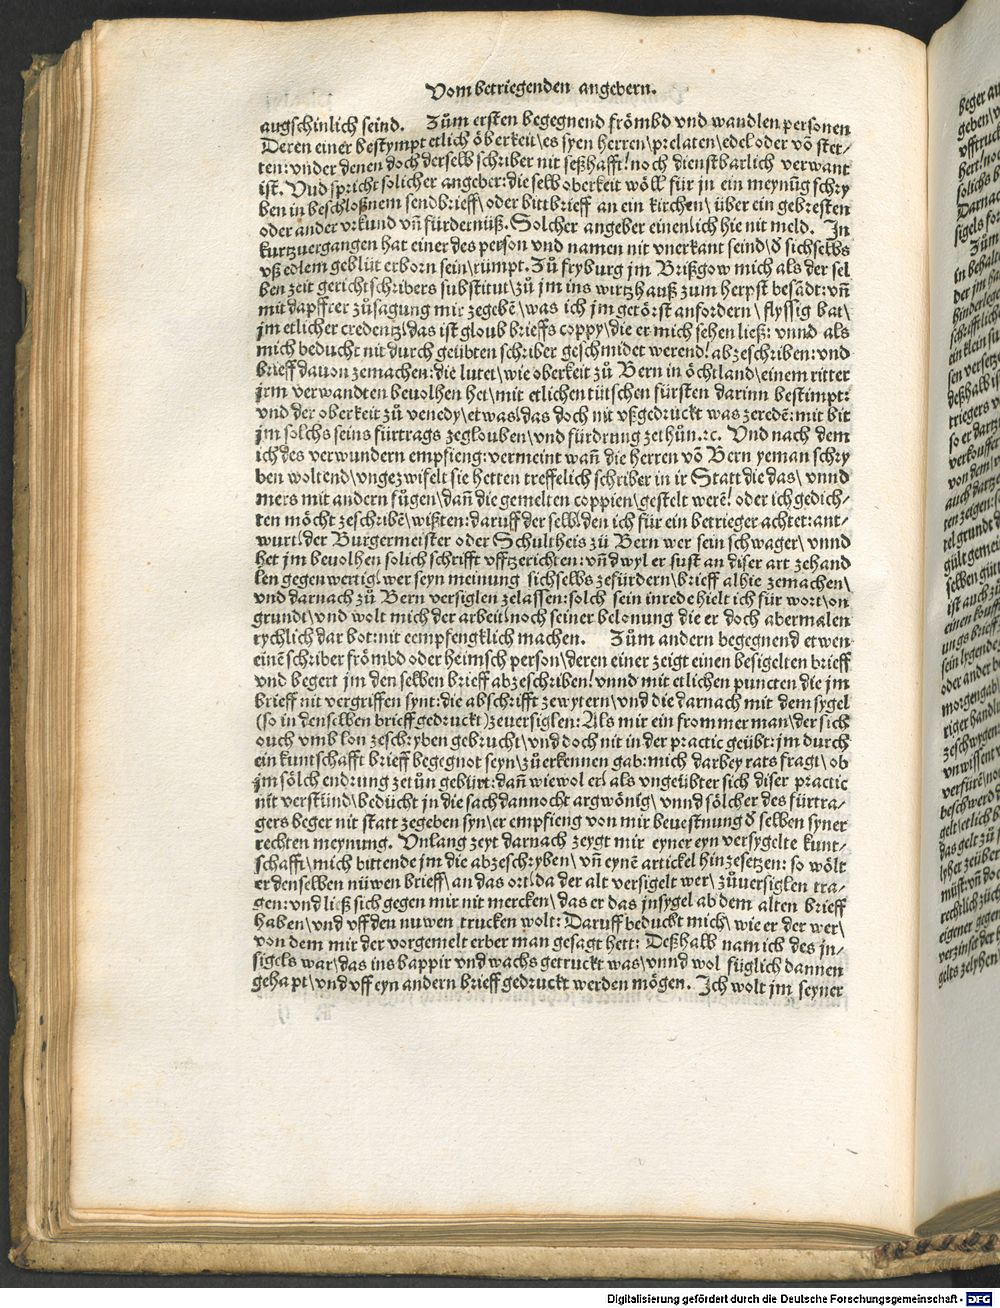 Vom betriegenden angebern.
augschinlich seind. Zům ersten begegnend frömbd vnd wandlen personen
Deren einer bestympt etlich öberkeit\es syen herren\prelaten\edel oder võ stet-
ten: vnder denen doch derselb schriber nit seßhafft! noch dienstbarlich verwant
ist. Vnd spricht solicher angeber: die selb oberkeit wöll für jn ein meynũg schry
ben in beschloßnem sendbrieff\oder bittbrieff an ein kirchen\über ein gebresten
oder ander vrkund vñ fürdernüß. Solcher angeber einen\ich hie nit meld. In
kurtzuergangen hat einer des person vnd namen nit vnerkant seind\ð sichselbs
vß edlem geblüt erborn sein\rümpt. Zů fryburg jm Brißgow mich als der sel
ben zeit gerichtschribers substitut\zů jm ins wirtzhauß zum herpst besãdt: vñ
mit dapffrer zůsagung mir zegebẽ\was ich jm getörst anfordern\flyssig bat\
jm etlicher credentz\das ist gloub brieffs coppy\die er mich sehen ließ: vnnd als
mich beducht nit durch geübten schriber geschmidet werend! abzeschriben: vnd
brieff dauon zemachen: die lutet\wie oberkeit zů Bern in öchtland\einem ritter
jrm verwandten beuolhen het\mit etlichen tütschen fürsten darinn bestimpt:
vnd der oberkeit zů venedy\etwas\das doch nit vßgedruckt was zeredẽ: mit bit
jm solchs seins fürtrags zeglouben\vnd fürdrung zethůn.⁊c. Vnd nach dem
ich des verwundern empfieng: vermeint wañ die herren võ Bern yeman schry
ben woltend\vngezwifelt sie hetten treffelich schriber in ir Statt die das\vnnd
mers mit andern fůgen\dañ die gemelten coppien\gestelt werẽ! oder ich gedich-
ten möcht zeschribẽ\wißten: daruff der selb\den ich für ein betrieger achtet: ant-
wurt\der Burgermeister oder Schultheis zů Bern wer sein schwager\vnnd
het jm beuolhen solich schrifft vfftzerichten: vñd wyl er sust an diser art zehand
len gegenwertig\wer seyn meinung sichselbs zefürdern\brieff alhie zemachen\
vnd darnach zů Bern versiglen zelassen: solch sein inrede hielt ich für wort\on
grundt\vnd wolt mich der arbeit\noch seiner belonung die er doch abermalen
rychlich dar bot: nit eempfengklich machen. Zům andern begegnend etwen
einẽ schriber frömbd oder heimsch person\deren einer zeigt einen besigelten brieff
vnd begert jm den selben brieff abzeschriben! vnnd mit etlichen puncten die jm
brieff nit vergriffen synt: die abschrifft zewytern\vnd die darnach mit dem sygel
(so in denselben brieff gedruckt) zeuersiglen: Als mir ein frommer man\der sich
ouch vmb lon zeschryben gebrucht\vnd doch nit in der practic geübt: jm durch
ein kuntschafft brieff begegnot seyn\zů erkennen gab: mich darbey rats fragt\ob
jm sölch endrung zetůn gebürt: dañ wiewol er\als vngeübter sich diser practic
nit verstünd\bedücht jn die sach dannocht argwönig\vnnd sölcher des fürtra-
gers beger nit statt zegeben syn\er empfieng von mir beuestnung ð selben syner
rechten meynung. Vnlang zeyt darnach zeygt mir eyner eyn versygelte kunt-
schafft\mich bittende jm die abzeschryben\vñ eynẽ artickel hinzesetzen: so wölt
er denselben nüwen brieff\an das ort\da der alt versigelt wer\zůuersiglen tra-
gen: vnd ließ sich gegen mir nit mercken\das er das jnsygel ab dem alten brieff
haben\vnd vff den nuwen trucken wolt: Daruff beduckt mich\wie er der wer\
von dem mir der vorgemelt erber man gesagt hett: Deßhalb nam ich des jn-
sigels war\das ins bappir vnd wachs getruckt was\vnnd wol füglich dannen
gehapt\vnd vff eyn andern brieff gedruckt werden mögen. Ich wolt jm seyner
Digitalisierung gefördert durch die Deutsche Forschungsgemeinschaft - DFG